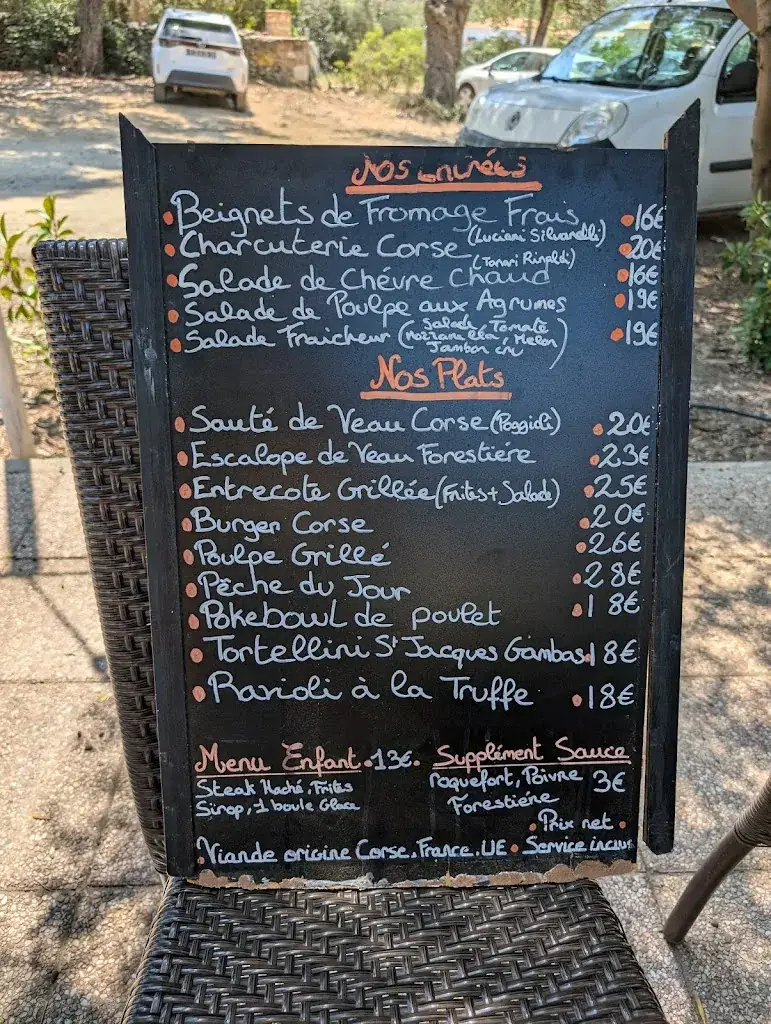 Nos Entrées
Beignets de Fromage Frais 16€
Charcuterie Corse (Luciani Silvarelli) 20€
(Tomari Rinaldi)
Salade de Chévre Chaud 16€
Salade de Poulpe aux Agrumes 19€
Salade Fraicheur (Salade, Tomate 19€
Mozzarella, Melon
Jambon cru)
Nos Plats
Sauté de Veau Corse (Poggioli) 20€
Escalope de Veau Forestiére 23€
Entrecote Grillée (Frites + Salade) 25€
Burger Corse 20€
Poulpe Grillé 26€
Pêche du Jour 28€
Pokebowl de poulet 18€
Tortellini St Jacques Gambas 18€
Ravioli à la Truffe 18€
Menu Enfant 13€
Steak Haché, Frites
Sirop, 1 boule Glace
Supplément Sauce
roquefort, Poivre 3€
Forestiére
Prix net
Viande origine Corse, France, UE Service inclus